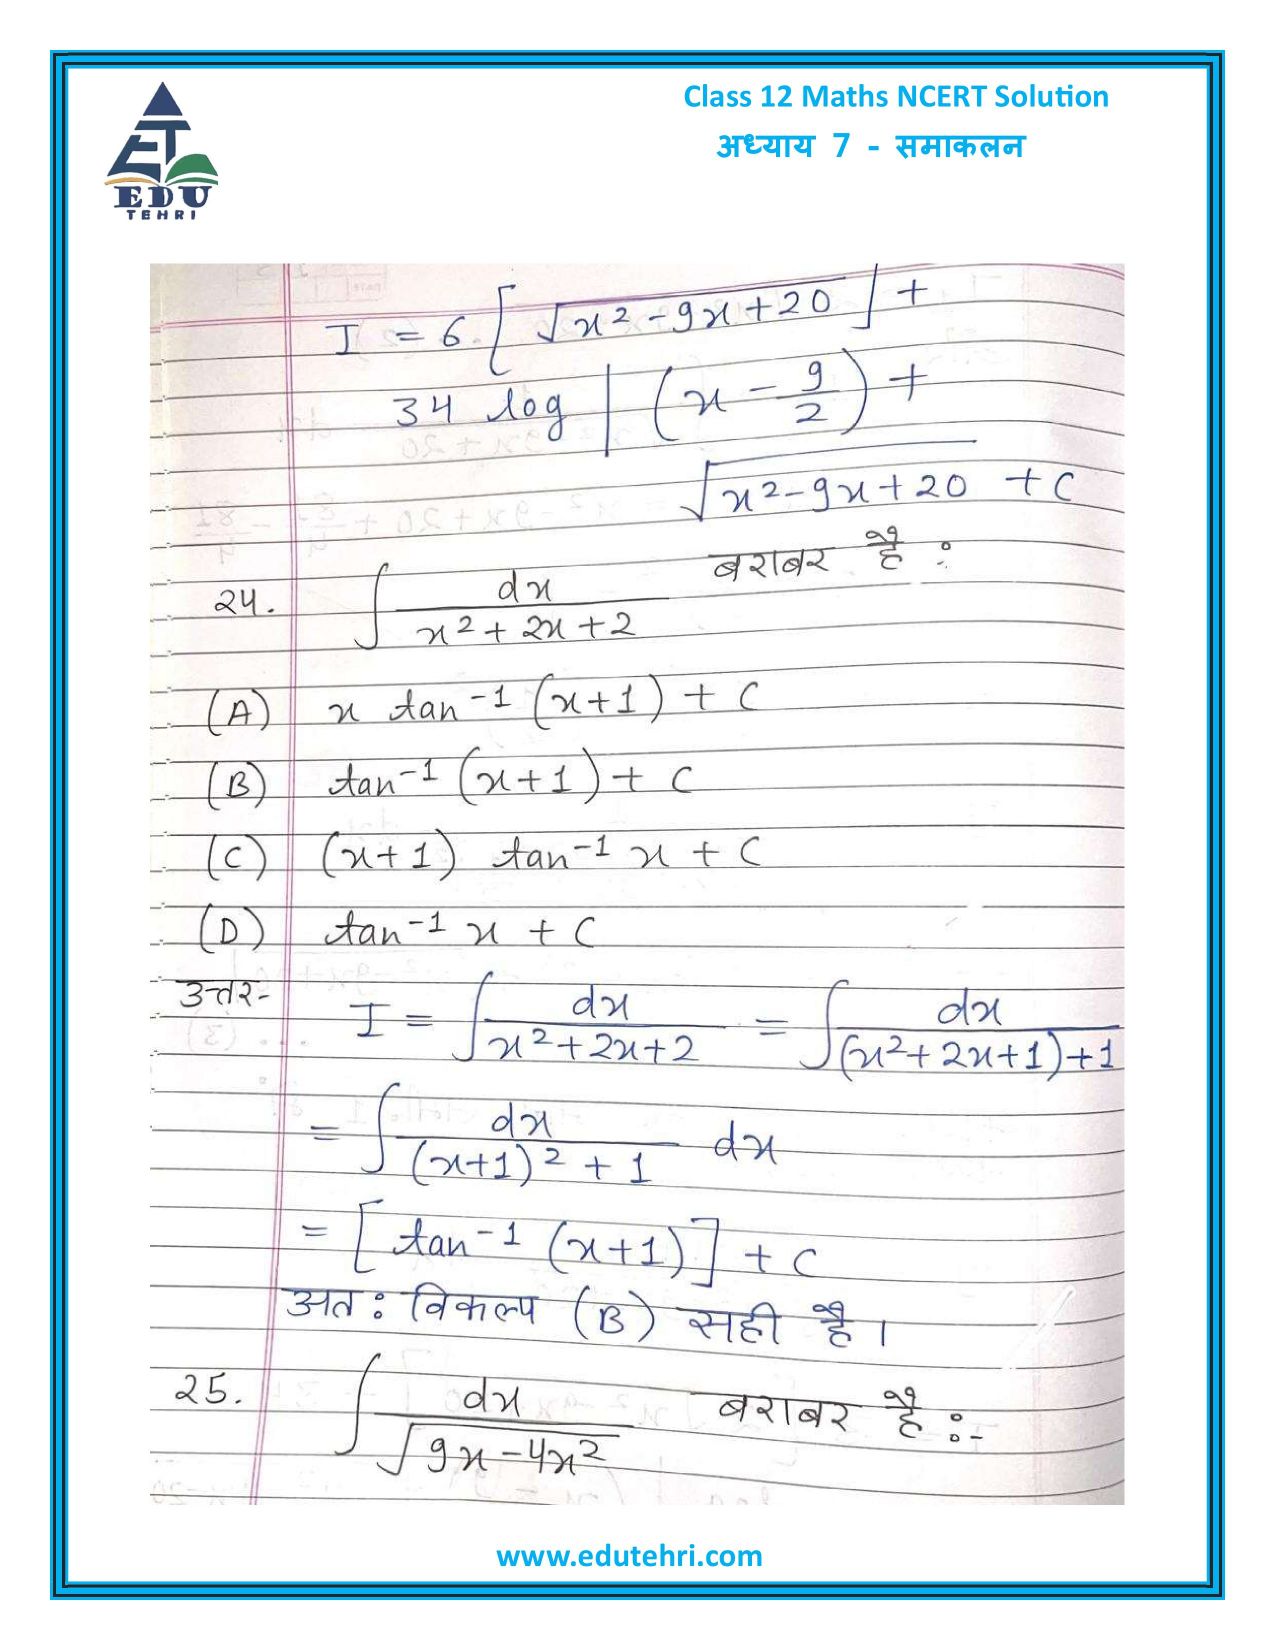 Class 12 Maths NCERT Solution
अध्याय 7 - समाकलन
EDU
TEHRI
I = 6 [ √(x² - 9x + 20) ] +
34 log | (x - 9/2) +
√(x² - 9x + 20) + C
24. ∫ dx / (x² + 2x + 2) बराबर है :
(A) x tan⁻¹ (x+1) + C
(B) tan⁻¹ (x+1) + C
(C) (x+1) tan⁻¹ x + C
(D) tan⁻¹ x + C
उत्तर:- I = ∫ dx / (x² + 2x + 2) = ∫ dx / ((x² + 2x + 1) + 1)
= ∫ dx / ((x+1)² + 1) dx
= [ tan⁻¹ (x+1) ] + C
अत: विकल्प (B) सही है।
25. ∫ dx / √(9x - 4x²) बराबर है :-
www.edutehri.com